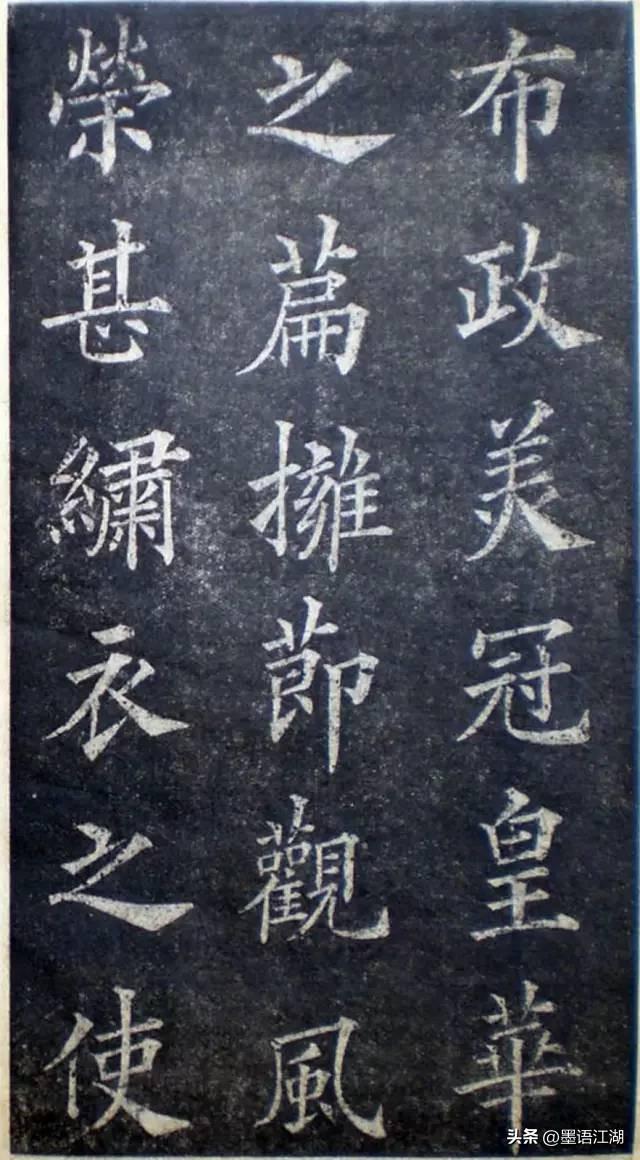 布政美冠皇華
之篇擁節觀風
榮甚繡衣之使
头条 @墨语江湖